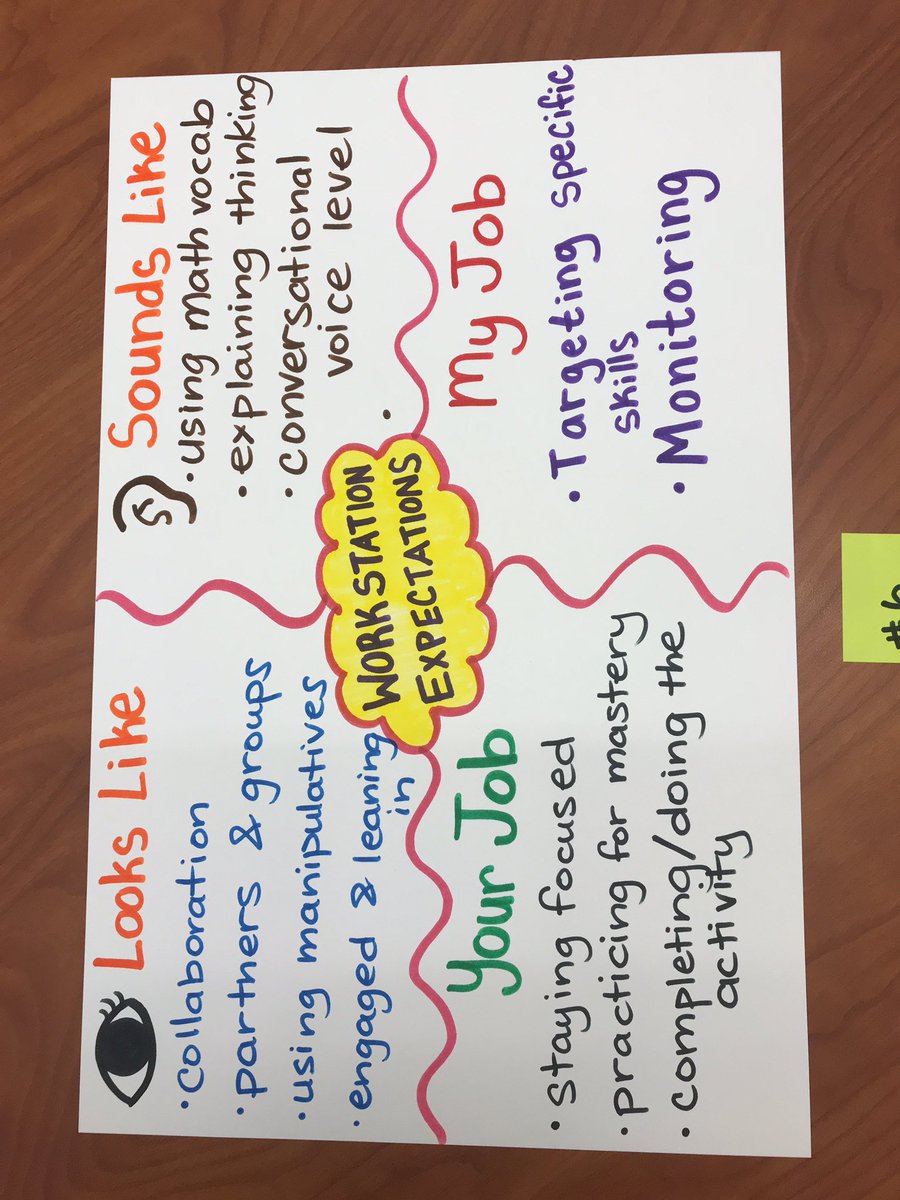 Looks Like
• collaboration
• partners & groups
• using manipulatives
• engaged & leaning
in
Sounds Like
• using math vocab
• explaining thinking
• conversational
voice level
•
WORKSTATION
EXPECTATIONS
Your Job
• staying focused
• practicing for mastery
• completing/doing the
activity
My Job
• Targeting specific
skills
• Monitoring